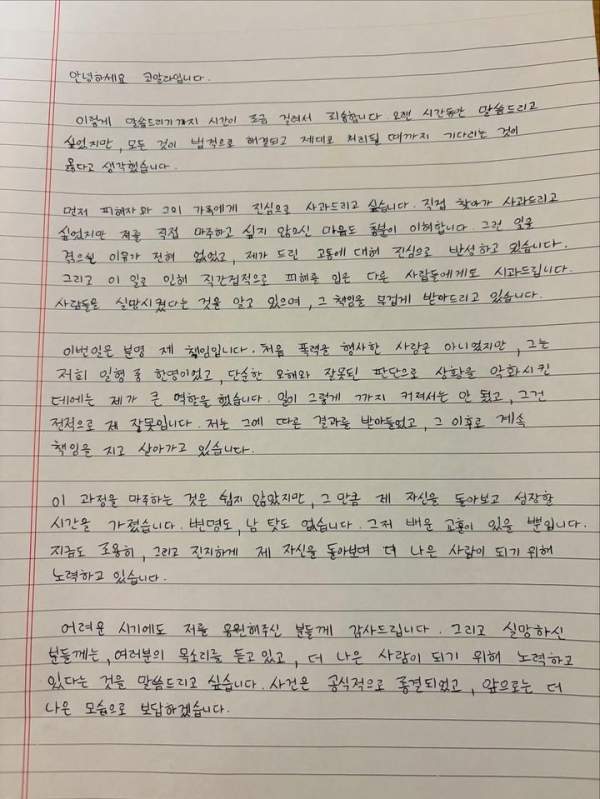 안녕하세요 코알라입니다.
이렇게 말씀드리기까지 시간이 조금 걸려서 죄송합니다. 오랜 시간동안 말씀드리고
싶었지만, 모든 것이 법적으로 해결되고 제대로 처리될 때까지 기다리는 것이
옳다고 생각했습니다.
먼저 피해자와 그의 가족에게 진심으로 사과드리고 싶습니다. 직접 찾아가 사과드리고
싶었지만 저를 직접 마주하고 싶지 않으신 마음도 충분히 이해합니다. 그런 일을
겪으실 이유가 전혀 없었고, 제가 드린 고통에 대해 진심으로 반성하고 있습니다.
그리고 이 일로 인해 직간접적으로 피해를 입은 다른 사람들에게도 사과드립니다.
사람들을 실망시켰다는 것을 알고 있으며, 그 책임을 무겁게 받아드리고 있습니다.
이번일은 분명 제 책임입니다. 처음 폭력을 행사한 사람은 아니었지만, 그는
저희 일행 중 한명이었고, 단순한 오해와 잘못된 판단으로 상황을 악화시킨
데에는 제가 큰 역할을 했습니다. 일이 그렇게 까지 커져서는 안 됐고, 그건
전적으로 제 잘못입니다. 저는 그에 따른 결과를 받아들였고, 그 이후로 계속
책임을 지고 살아가고 있습니다.
이 과정을 마주하는 것은 쉽지 않았지만, 그만큼 제 자신을 돌아보고 성장할
시간을 가졌습니다. 변명도, 남 탓도 없습니다. 그저 배운 교훈이 있을 뿐입니다.
지금도 조용히, 그리고 진지하게 제 자신을 돌아보며 더 나은 사람이 되기 위해
노력하고 있습니다.
어려운 시기에도 저를 응원해주신 분들께 감사드립니다. 그리고 실망하신
분들께는, 여러분의 목소리를 듣고 있고, 더 나은 사람이 되기 위해 노력하고
있다는 것을 말씀드리고 싶습니다. 사건은 공식적으로 종결되었고, 앞으로는 더
나은 모습으로 보답하겠습니다.